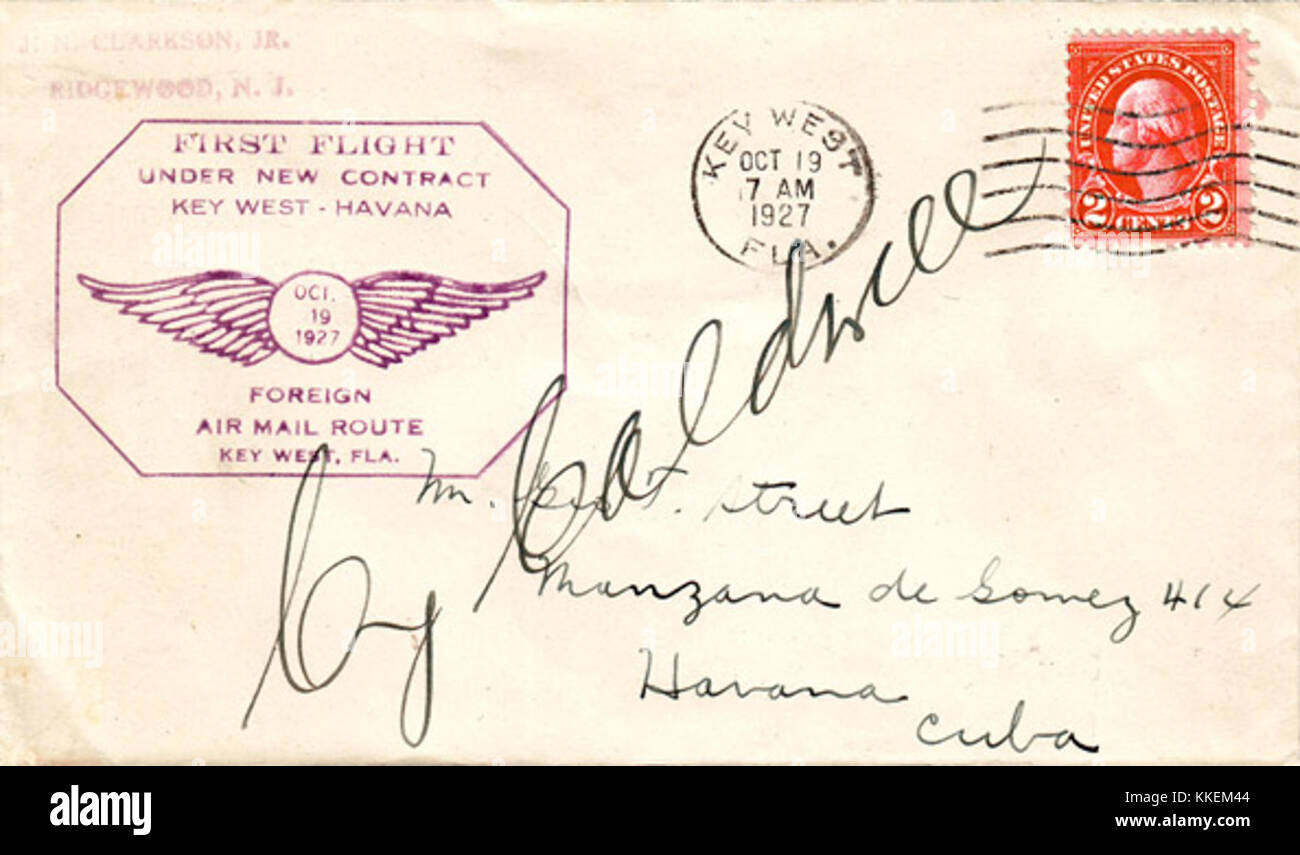 J. N. CLARKSON, JR.
RIDGEWOOD, N. J.
FIRST FLIGHT
UNDER NEW CONTRACT
KEY WEST - HAVANA
OCT.
19
1927
FOREIGN
AIR MAIL ROUTE
KEY WEST, FLA.
KEY WEST
OCT 19
7 AM
1927
FLA.
UNITED STATES POSTAGE
2 CENTS 2
Cy Caldwell
Mr. Street
Manzana de Gomez 414
Havana
Cuba
alamy
alamy
Image ID: KKEM44
www.alamy.com